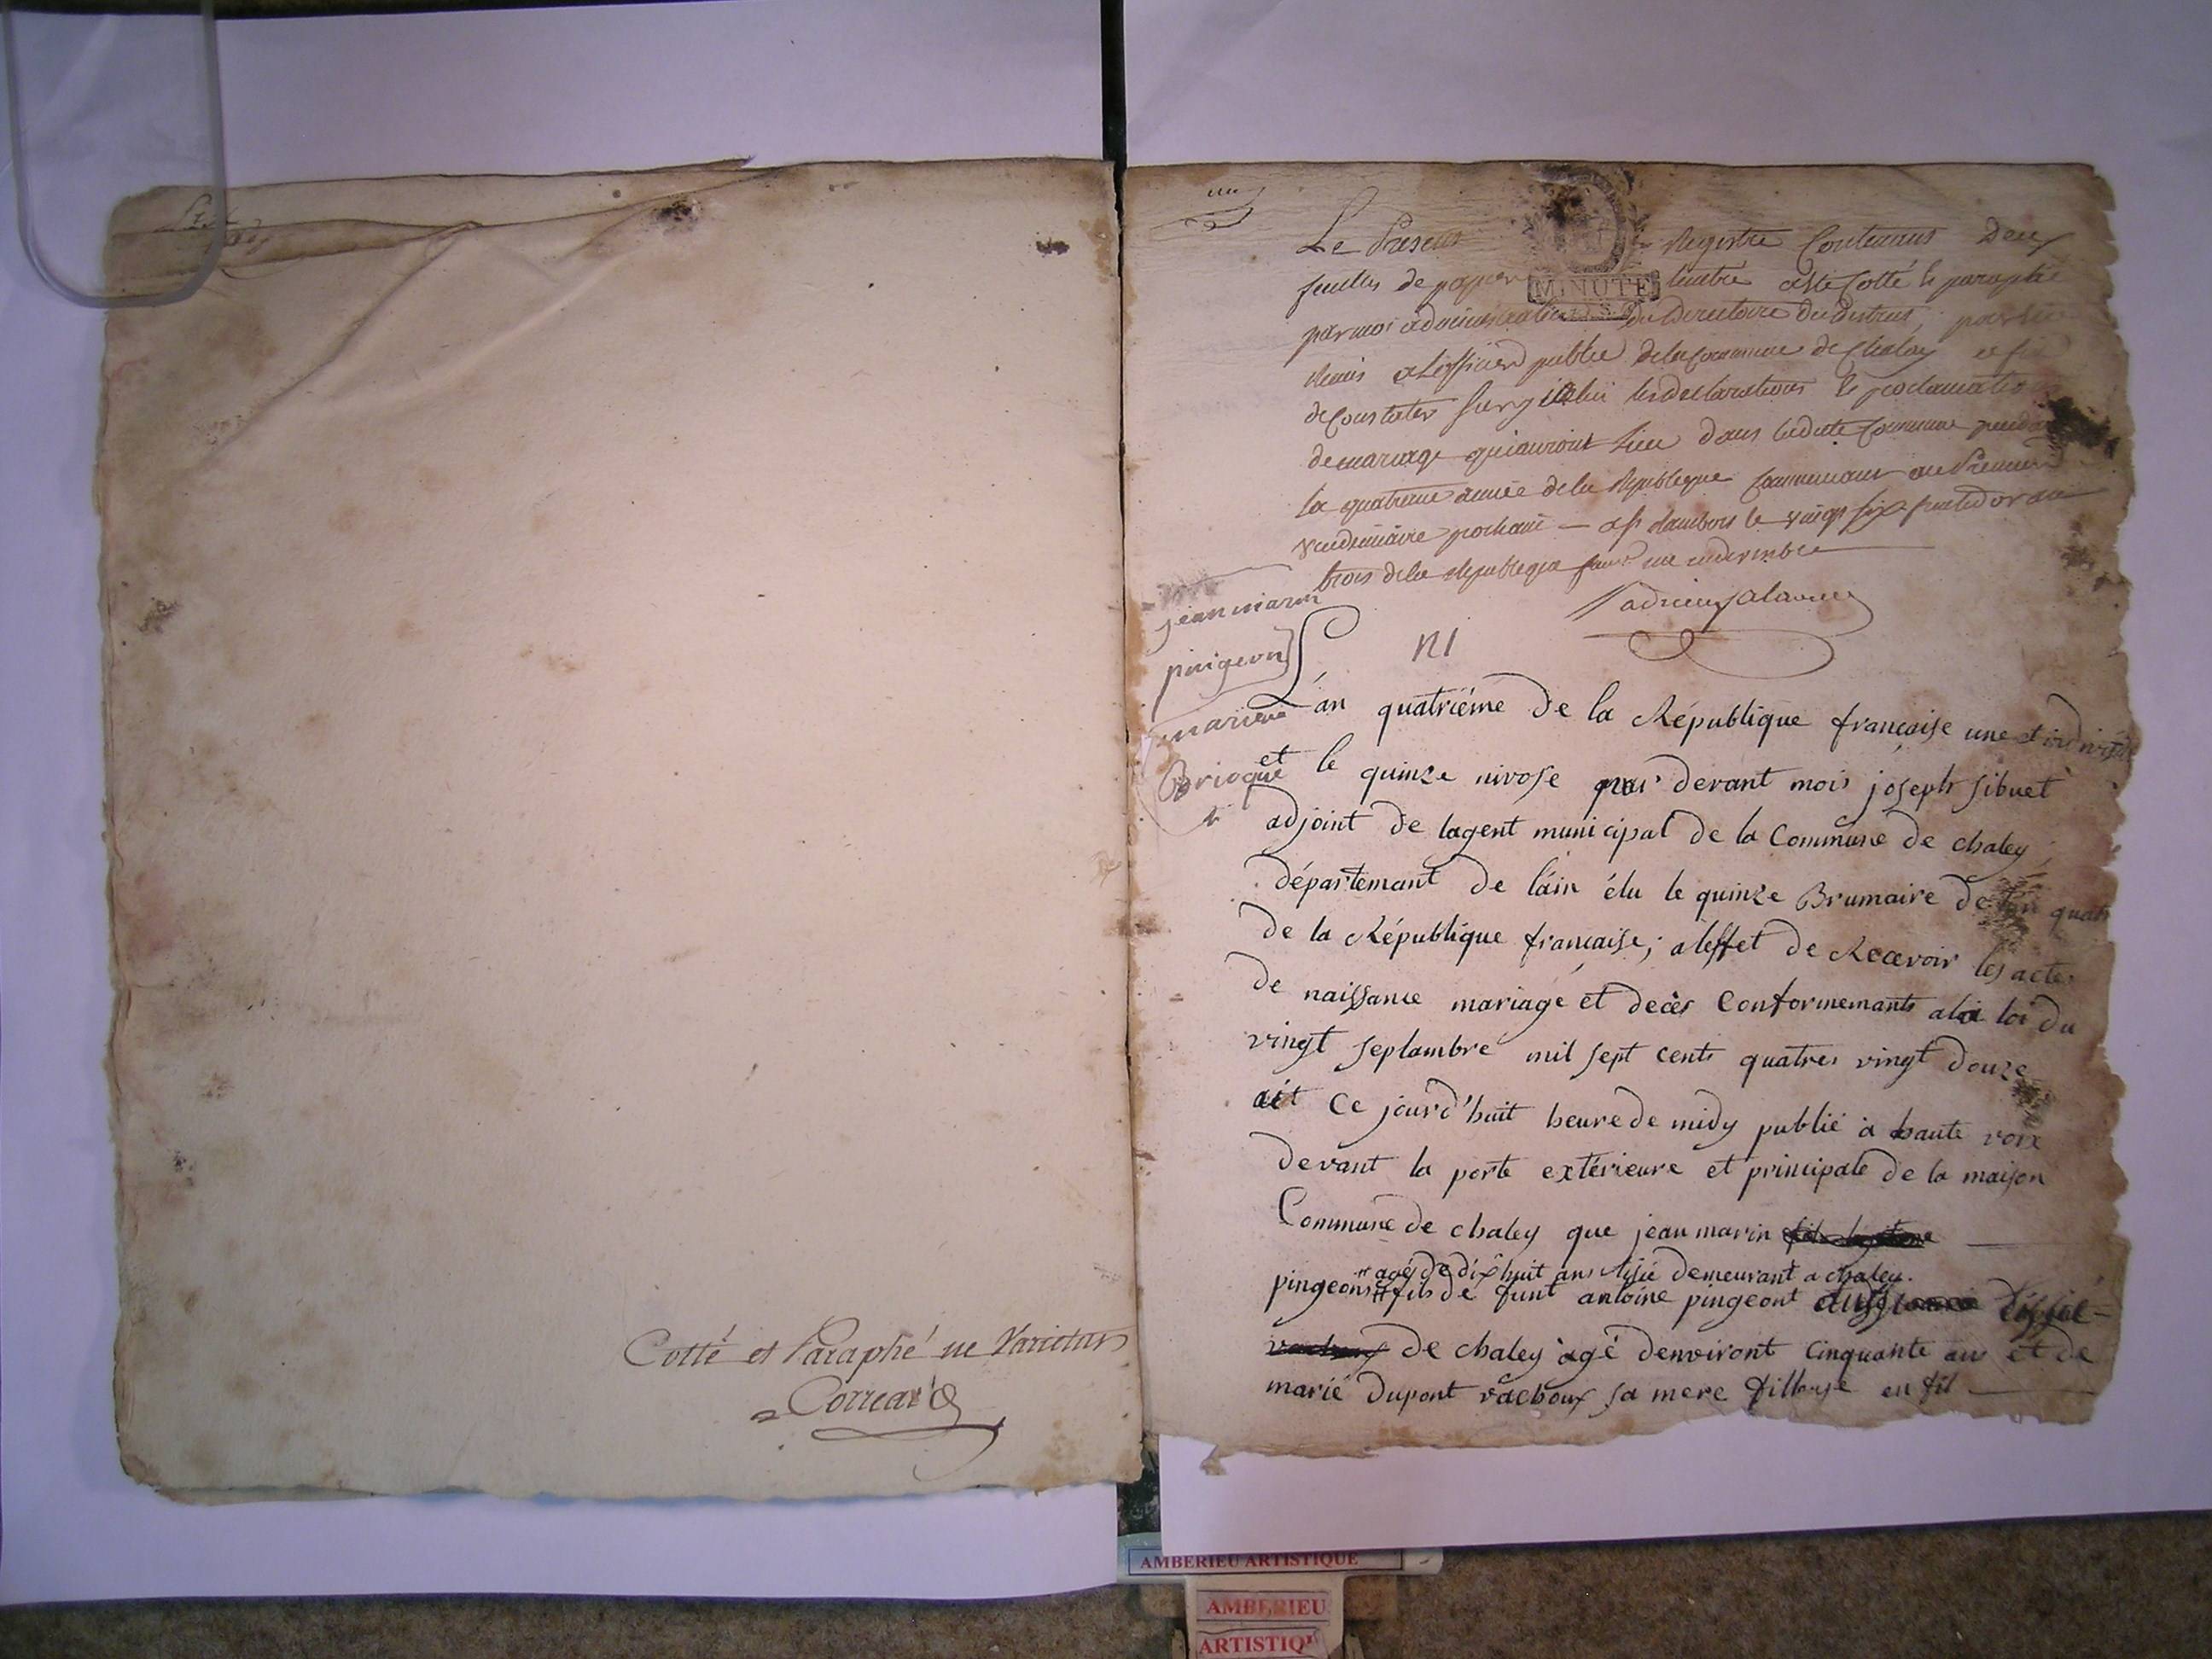 Cotté et Paraphé ne Varietur
Correard
un
Le Present Registre Contenant deux
feuilles de papier timbré a été Cotté & paraphé
MINUTE
par moi administrateur du Directoire du district, pour être
Remis a Lofficier public de la Commune de Chaley affin
de Constater sur icelui les declarations & proclamations
de mariage qui auront Lieu dans ladite Commune pendant
La quatrieme année de la Republique Commencant au Premier
vendemiaire prochain — a St Rambert le vingt six fructidor an
trois de la Republique une indivisible
jean marin
pingeon
N 1
L'an quatriéme de la République françaiSe une et indivisible
mariene
Brioque
et le quinze nivose par devant mois joseph Sibuet
adjoint de lagent municipal de la Commune de chaley,
départemant de láin élu le quinze Brumaire de lan quatr
de la République françaiSe; a leffet de Recevoir les actes
de naissance mariagé et decès Conformemants a la loi du
vingt septambre mil sept cents quatres vingt douze
ait Ce jourd'huit heure de midy publié à haute voix
devant la porte extérieure et principale de la maison
Commune de chaley que jean marin
agé de dix huit ans demeurant a chaley.
pingeons fils de funt antoine pingeont
de chaley àgé denviront Cinquante ans et de
marié Dupont vachoux sa mere filleuse en fil
AMBERIEU ARTISTIQUE
AMBERIEU
ARTISTIQU